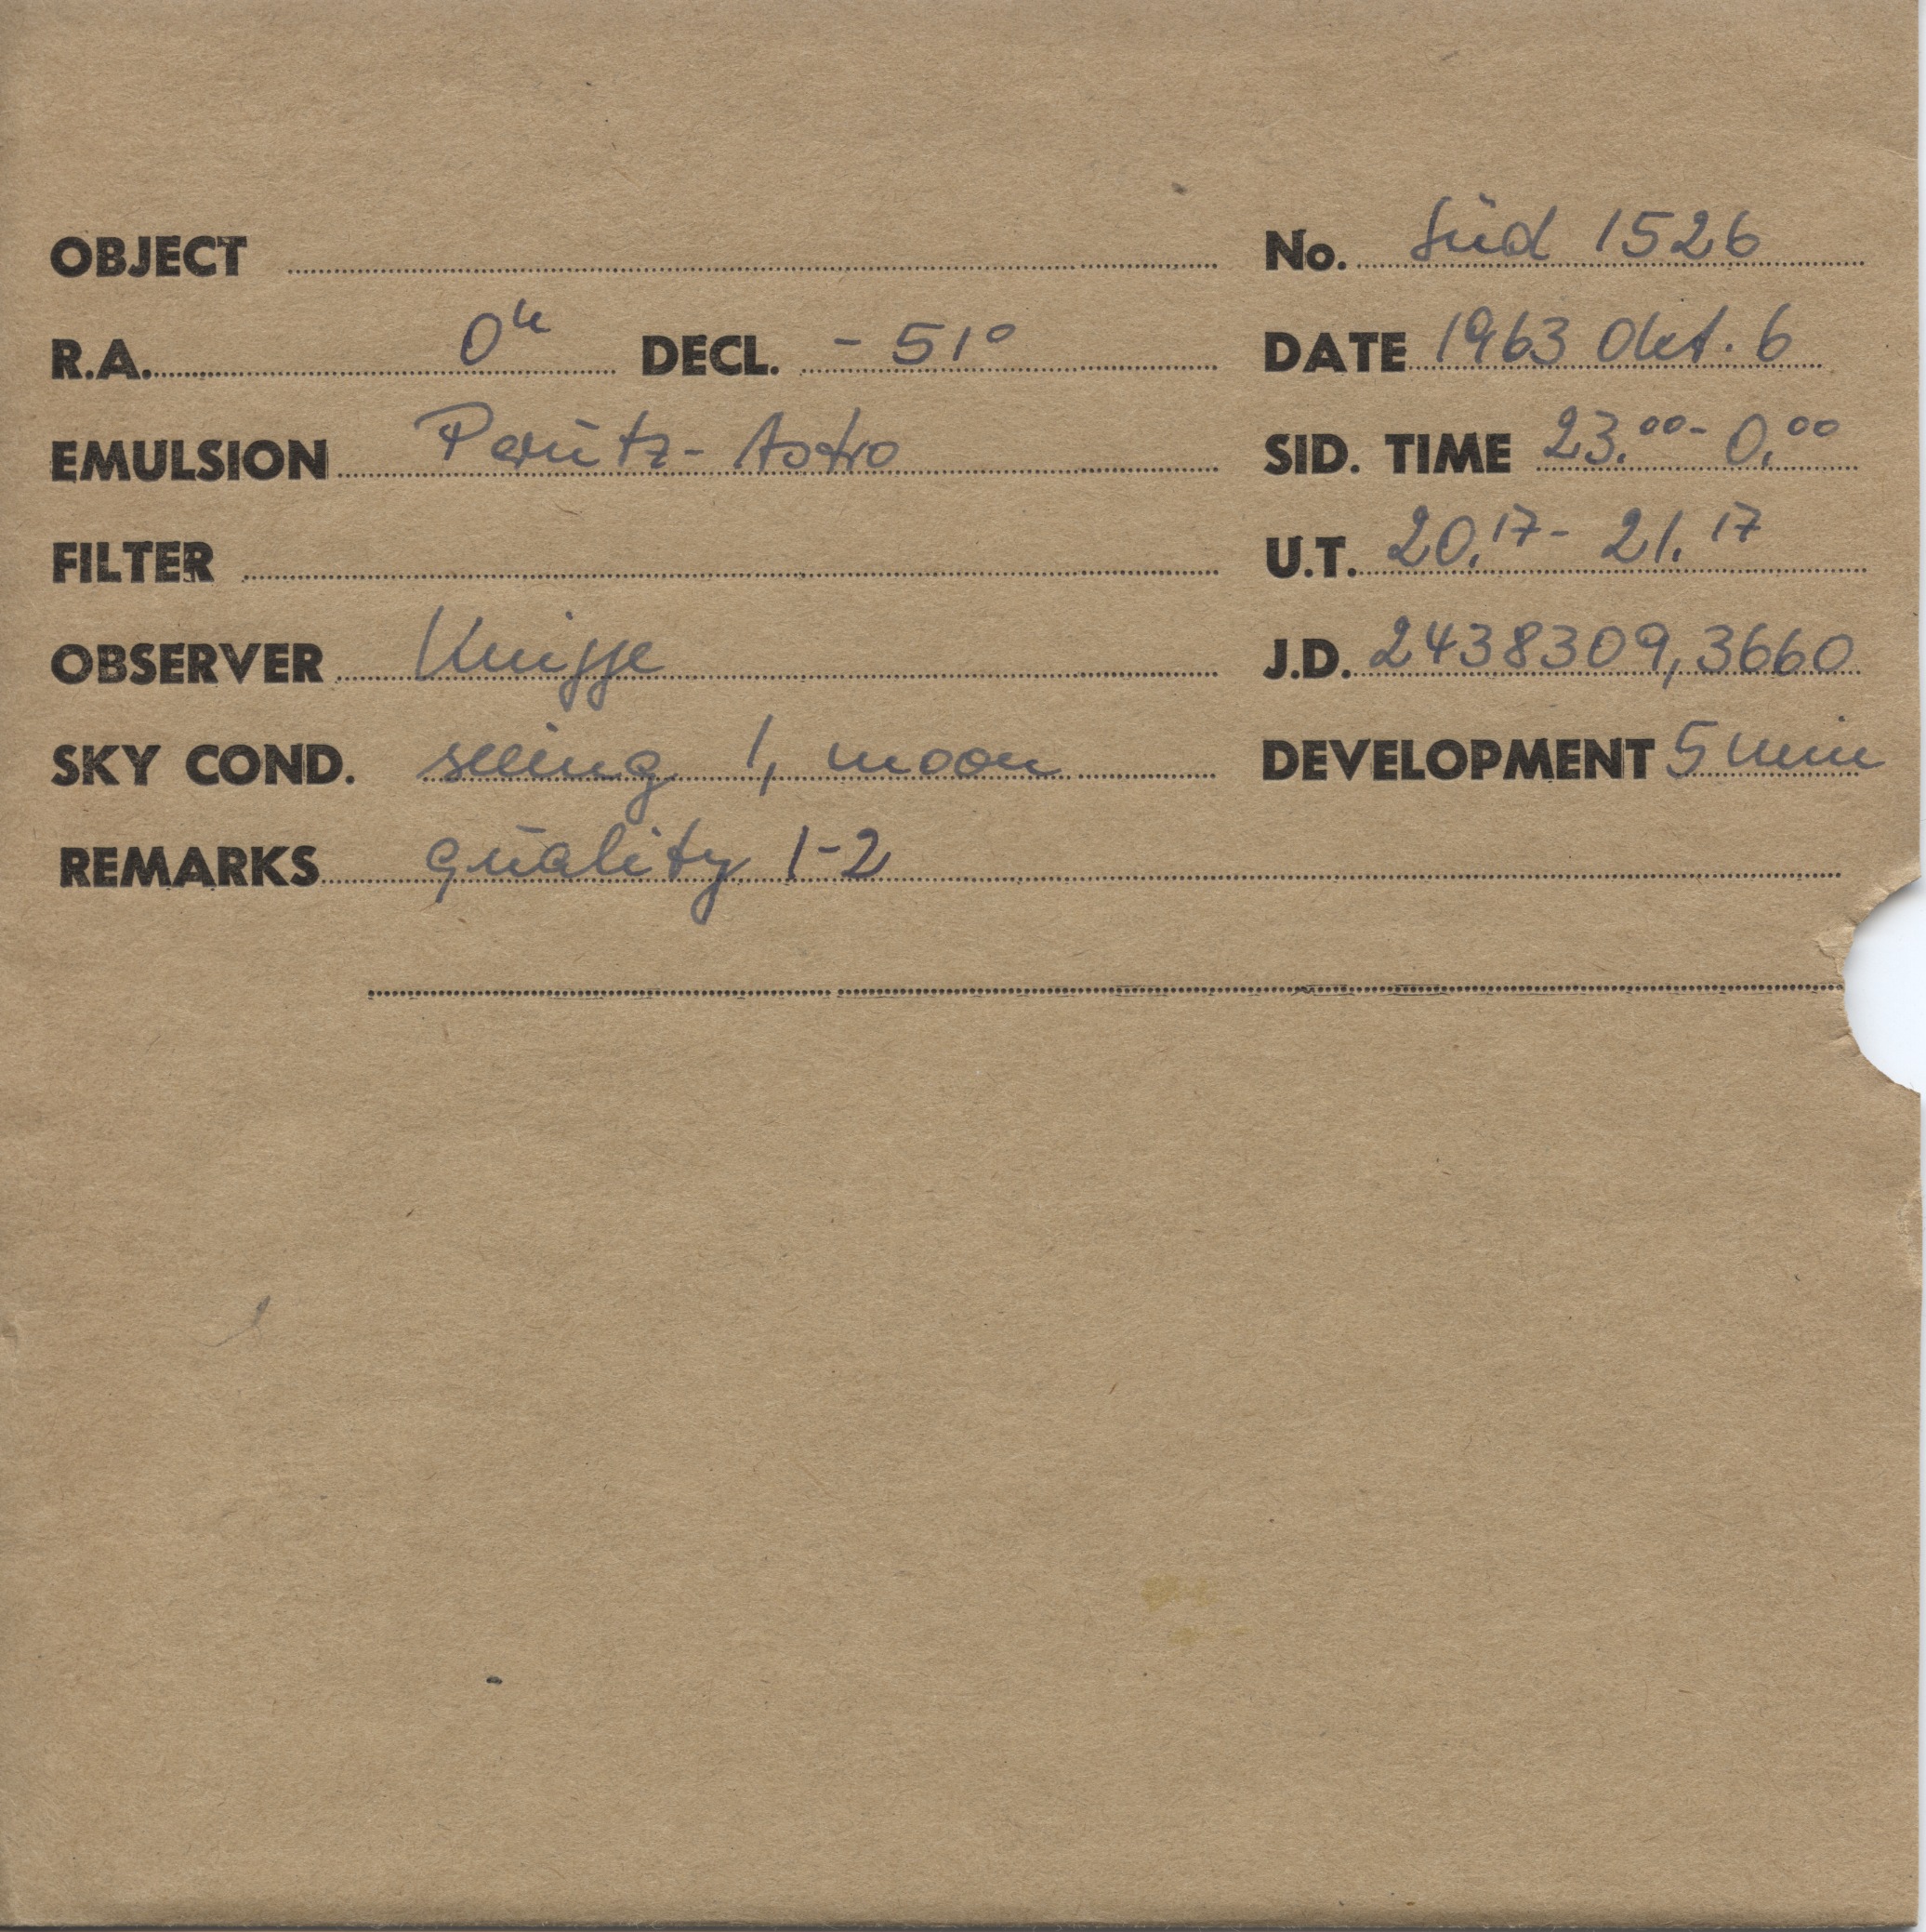 OBJECT No. Süd 1526
R.A. 0h DECL. - 51° DATE 1963 Okt. 6
EMULSION Perutz - Astro SID. TIME 23.00 - 0.00
FILTER U.T. 20.17 - 21.17
OBSERVER Knigge J.D. 2438309,3660
SKY COND. seeing 1, moon DEVELOPMENT 5 min
REMARKS quality 1-2